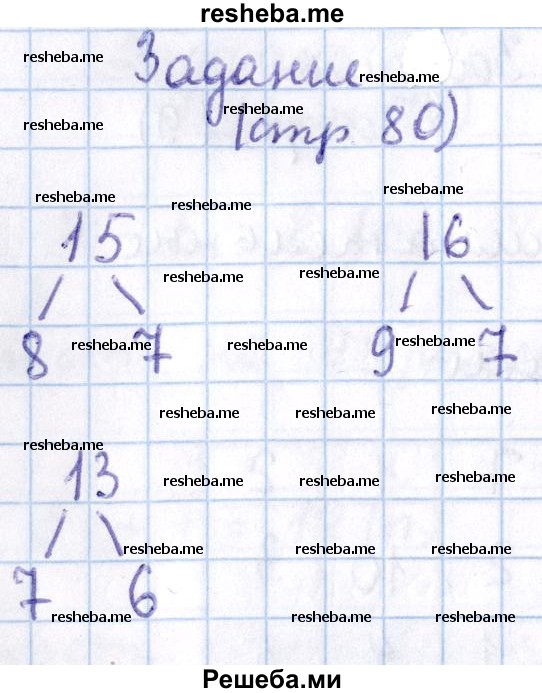 resheba.me
Задание
resheba.me resheba.me
resheba.me resheba.me
(стр 80)
resheba.me resheba.me resheba.me
15 16
resheba.me resheba.me
8 7 9 7
resheba.me resheba.me resheba.me
resheba.me resheba.me resheba.me
resheba.me
13
resheba.me resheba.me resheba.me
resheba.me resheba.me resheba.me
7 6
resheba.me resheba.me resheba.me
Решеба.ми